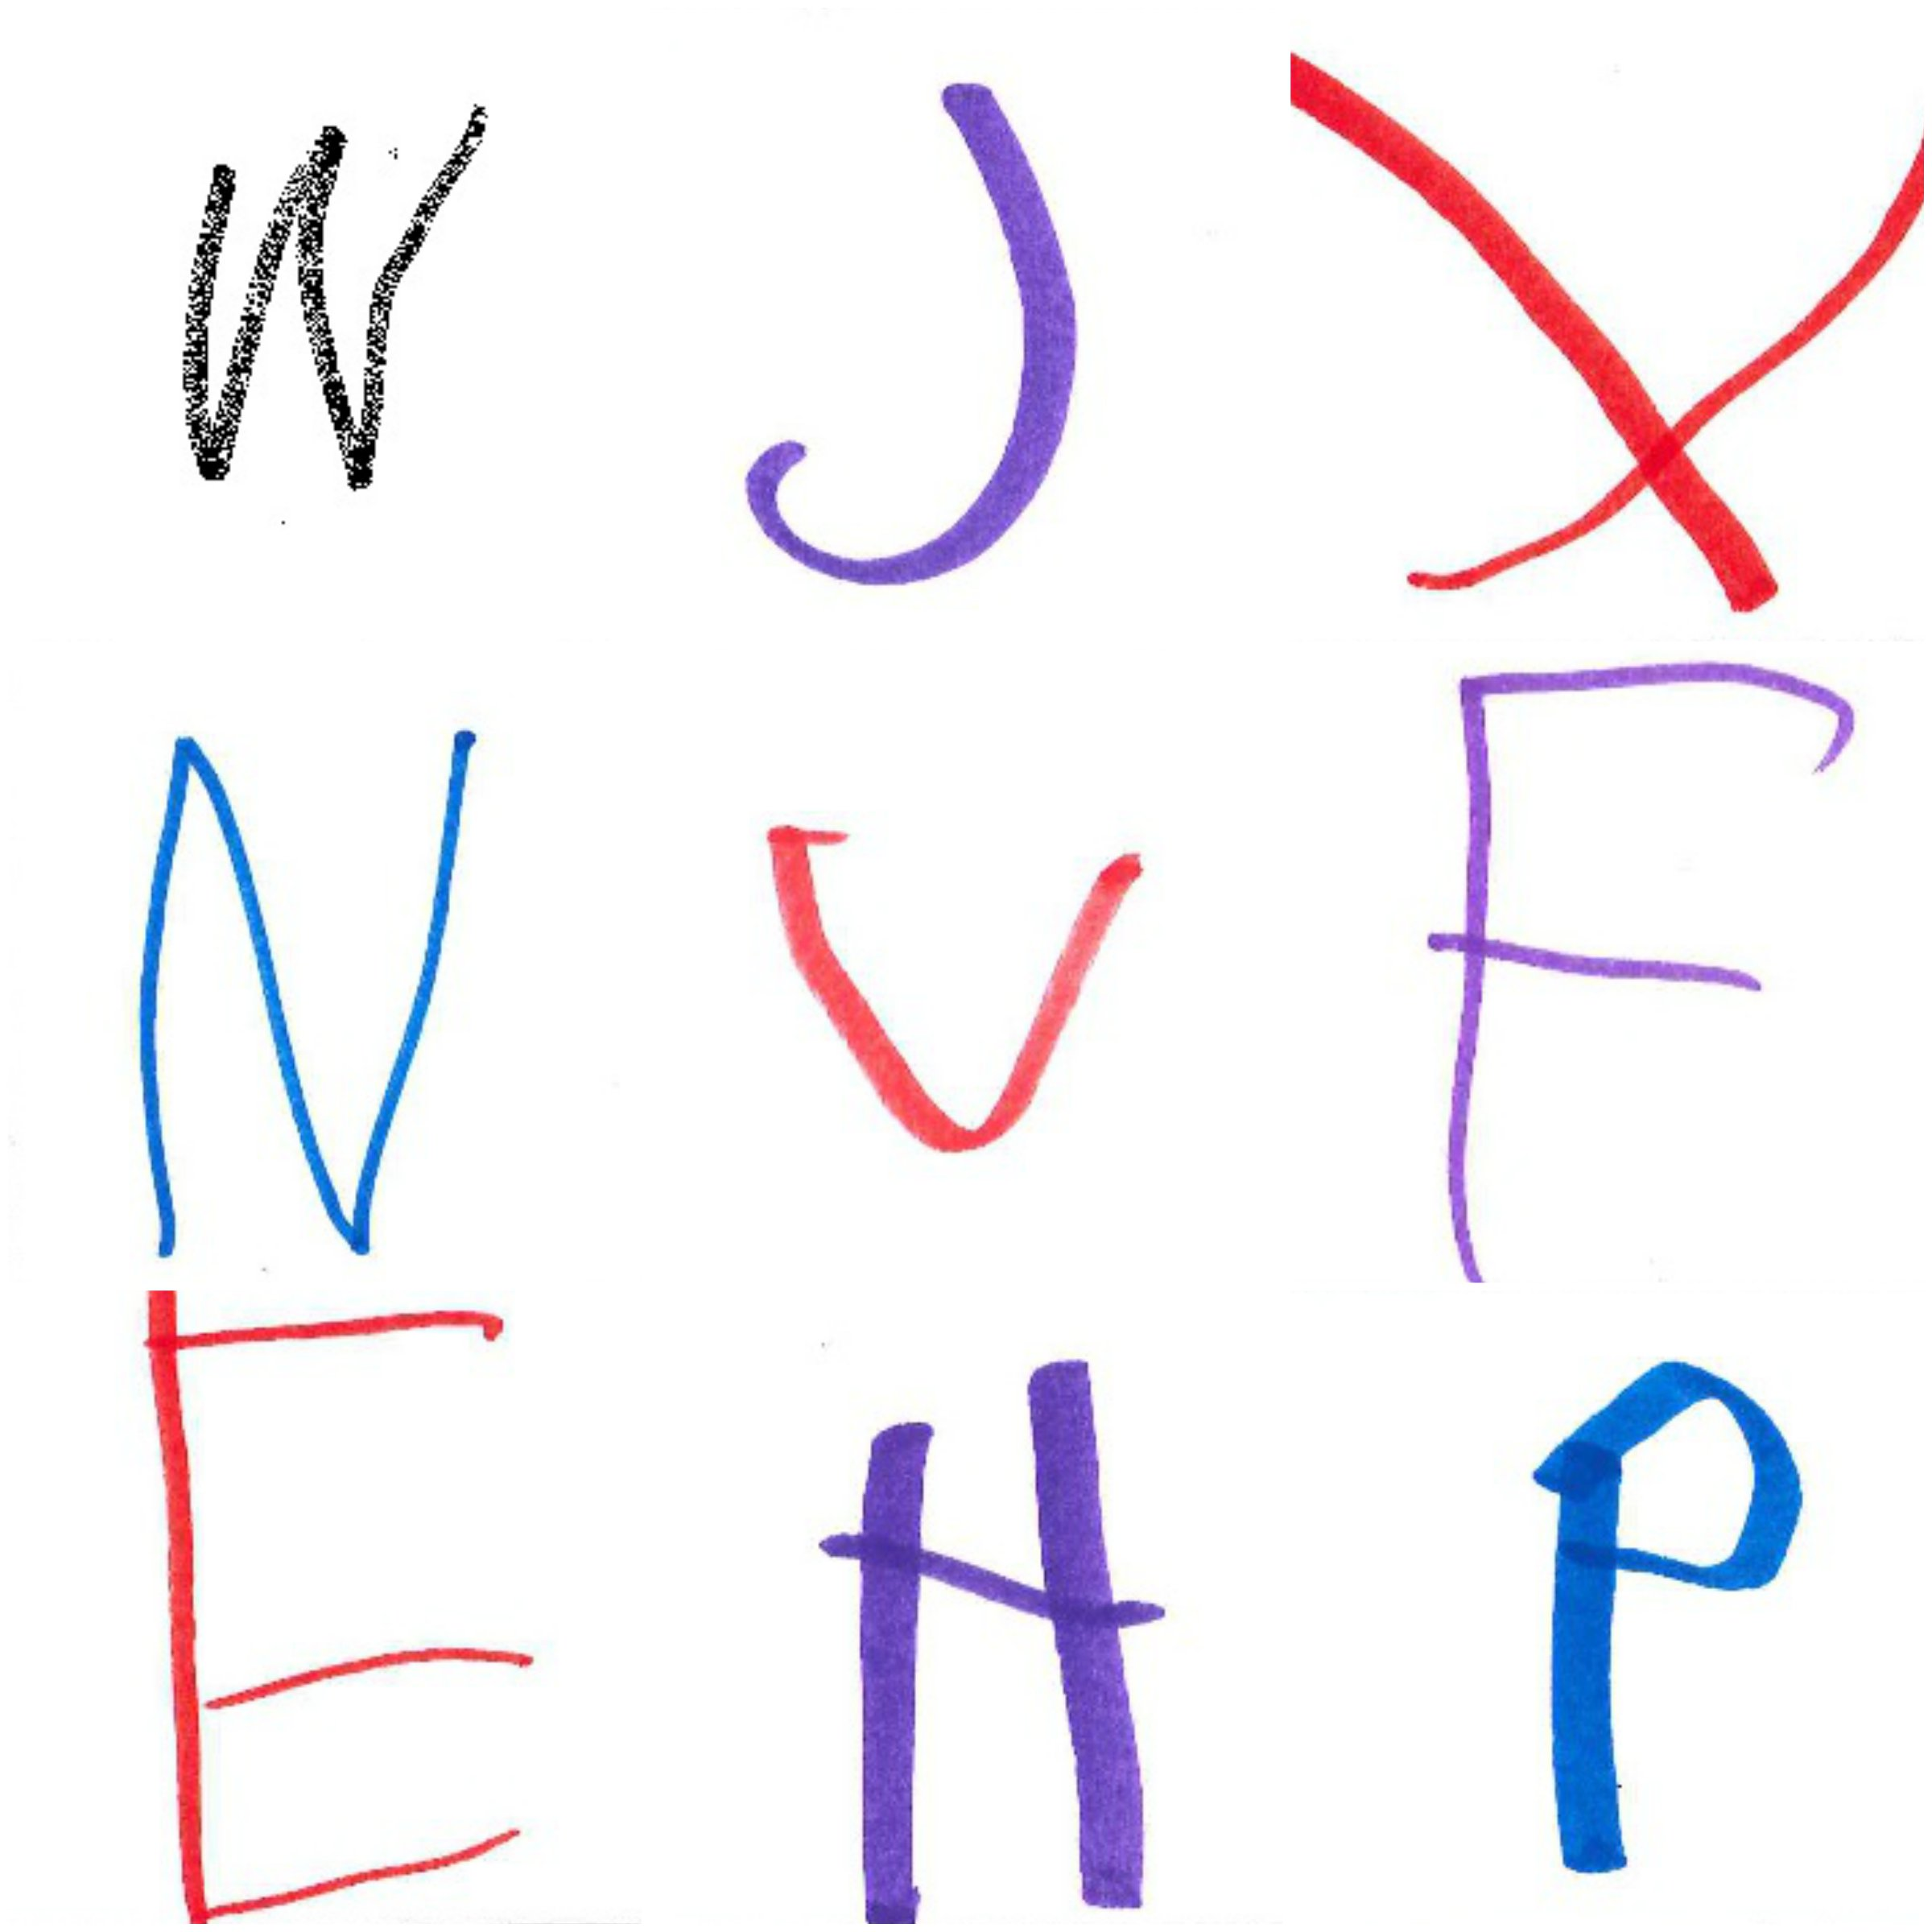 W J X
N V F
E H P